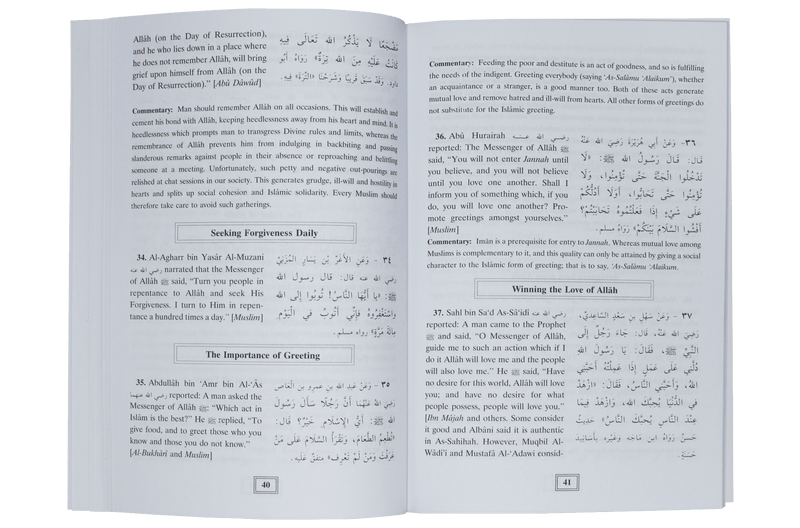 Allâh (on the Day of Resurrection),
and he who lies down in a place where
he does not remember Allâh, will bring
grief upon himself from Allâh (on the
Day of Resurrection)." [Abû Dâwûd]
تَضْجَعًا لَا يَذْكُرُ الله تَعَالَى فِيهِ
كَانَتْ عَلَيْهِ مِنَ الله تِرَةٌ» رَوَاهُ أَبُو
داود. وَقَدْ سَبَقَ قَرِيبًا وَشَرَحْنَا «التِّرَةَ» فِيهِ.
Commentary: Man should remember Allâh on all occasions. This will establish and
cement his bond with Allâh, keeping heedlessness away from his heart and mind. It is
heedlessness which prompts man to transgress Divine rules and limits, whereas the
remembrance of Allâh prevents him from indulging in backbiting and passing
slanderous remarks against people in their absence or reproaching and belittling
someone at a meeting. Unfortunately, such petty and negative out-pourings are
relished at chat sessions in our society. This generates grudge, ill-will and hostility in
hearts and splits up social cohesion and Islâmic solidarity. Every Muslim should
therefore take care to avoid such gatherings.
Seeking Forgiveness Daily
34. Al-Agharr bin Yasâr Al-Muzani
رضي الله عنه narrated that the Messenger
of Allâh ﷺ said, "Turn you people in
repentance to Allâh and seek His
Forgiveness. I turn to Him in repen-
tance a hundred times a day." [Muslim]
٣٤ - وَعَنِ الأَغَرِّ بْنِ يَسَارٍ المُزَنِيِّ
رضي الله عنه قال: قال رسول الله
ﷺ: «يا أَيُّهَا النَّاسُ! تُوبُوا إلى الله
وَاسْتَغْفِرُوهُ فَإِنِّي أَتُوبُ فِي الْيَوْمِ
مِائَةَ مَرَّةٍ» رواه مسلم.
The Importance of Greeting
35. Abdullâh bin 'Amr bin Al-'Âs
رضي الله عنهما reported: A man asked the
Messenger of Allâh ﷺ: "Which act in
Islâm is the best?" He ﷺ replied, "To
give food, and to greet those who you
know and those you do not know."
[Al-Bukhâri and Muslim]
٣٥ - وَعَنْ عَبْدِ الله بن عمرو بن العاص
رَضِيَ الله عَنْهُمَا أَنَّ رَجُلًا سَأَلَ رَسُولَ
الله ﷺ: أَيُّ الإِسْلَامِ خَيْرٌ؟ قَالَ:
«تُطْعِمُ الطَّعَامَ، وَتَقْرَأُ السَّلَامَ عَلَى مَنْ
عَرَفْتَ وَمَنْ لَمْ تَعْرِفْ» متفق عليه.
40
Commentary: Feeding the poor and destitute is an act of goodness, and so is fulfilling
the needs of the indigent. Greeting everybody (saying 'As-Salâmu 'Alaikum'), whether
an acquaintance or a stranger, is a good manner too. Both of these acts generate
mutual love and remove hatred and ill-will from hearts. All other forms of greetings do
not substitute for the Islâmic greeting.
36. Abû Hurairah رضي الله عنه
reported: The Messenger of Allâh ﷺ
said, "You will not enter Jannah until
you believe, and you will not believe
until you love one another. Shall I
inform you of something which, if you
do, you will love one another? Pro-
mote greetings amongst yourselves."
[Muslim]
٣٦ - وَعَنْ أَبِي هُرَيْرَةَ رَضِيَ الله عَنْهُ
قَالَ: قَالَ رَسُولُ الله ﷺ: «لَا
تَدْخُلُوا الْجَنَّةَ حَتَّى تُؤْمِنُوا، وَلَا
تُؤْمِنُوا حَتَّى تَحَابُّوا، أَوَلَا أَدُلُّكُمْ
عَلَى شَيْءٍ إِذَا فَعَلْتُمُوهُ تَحَابَبْتُمْ؟
أَفْشُوا السَّلَامَ بَيْنَكُمْ» رَوَاهُ مسلم.
Commentary: Imân is a prerequisite for entry to Jannah. Whereas mutual love among
Muslims is complementary to it, and this quality can only be attained by giving a social
character to the Islâmic form of greeting; that is to say, 'As-Salâmu 'Alaikum.
Winning the Love of Allâh
37. Sahl bin Sa'd As-Sâ'idî رضي الله عنه
reported: A man came to the Prophet
ﷺ and said, "O Messenger of Allâh,
guide me to such an action which if I
do it Allâh will love me and the people
will also love me." He ﷺ said, "Have
no desire for this world, Allâh will love
you; and have no desire for what
people possess, people will love you."
[Ibn Mâjah and others. Some consider
it good and Albâni said it is authentic
in As-Sahihah. However, Muqbil Al-
Wâdi'i and Mustafâ Al-'Adawi consid-
٣٧ - وَعَنْ سَهْلِ بن سَعْدٍ السَّاعِدِيِّ،
رَضِيَ الله عَنْهُ، قَالَ: جَاءَ رَجُلٌ إِلَى
النَّبِيِّ ﷺ، فَقَالَ: يَا رَسُولَ الله
دُلَّنِي عَلَى عَمَلٍ إِذَا عَمِلْتُهُ أَحَبَّنِي
اللهُ، وَأَحَبَّنِي النَّاسُ، فَقَالَ: «ازْهَدْ
فِي الدُّنْيَا يُحِبَّكَ الله، وَازْهَدْ فِيمَا
عِنْدَ النَّاسِ يُحِبَّكَ النَّاسُ» حديثٌ
حَسَنٌ رَوَاهُ ابن ماجه وَغَيْرُه بِأَسَانِيدَ
حَسَنَةٍ.
41